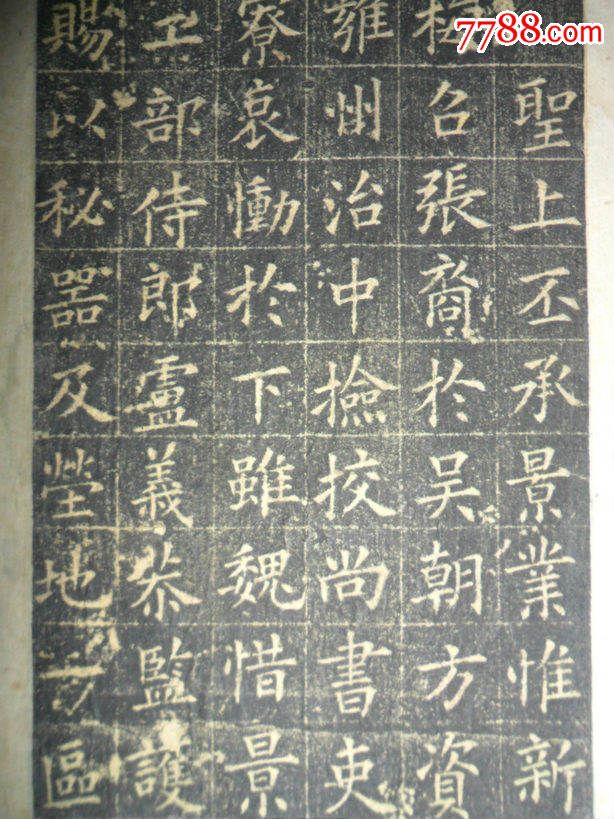 7788.com
聖上丕承景業惟新
召張裔於吳朝方資
雍州治中撿挍尚書吏
寮哀慟於下雖魏惜景
工部侍郎盧義恭監護
賜以秘器及塋地區